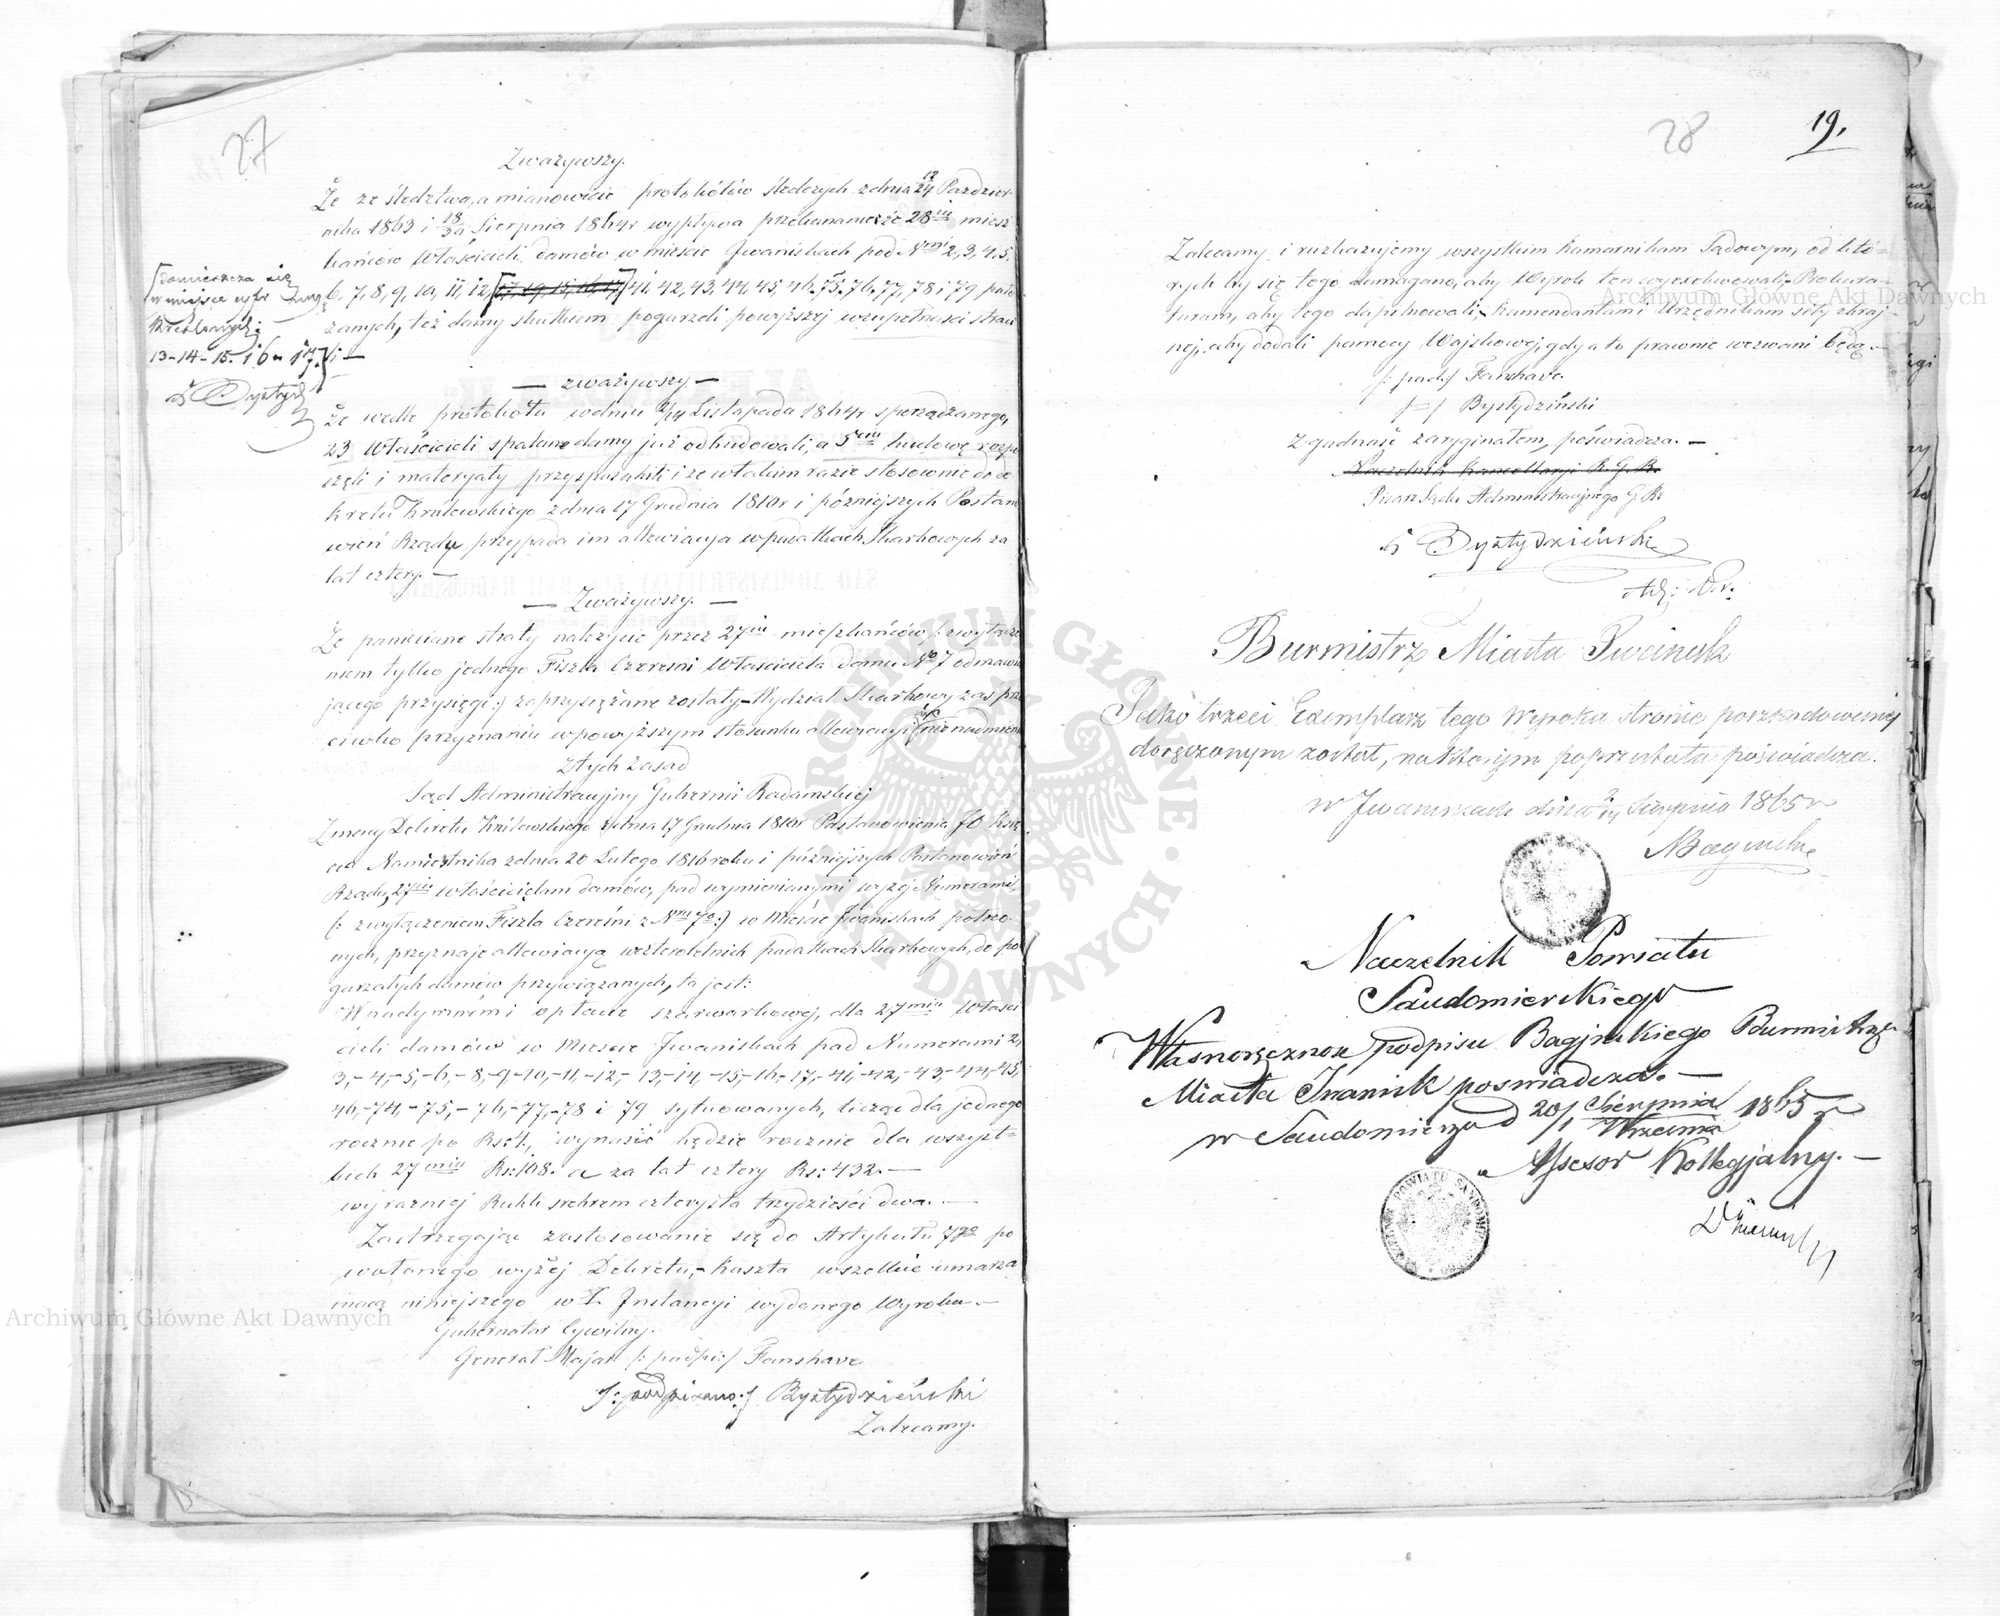 27
Zważywszy.
Że ze śledztwa, a mianowicie protokółów śledczych z dnia 12/24 Paździer-
nika 1863 i 18/30 Sierpnia 1864r wypływa przekonanie że 28iu miesz
kańców Właścicieli domów w mieście Iwaniskach pod Nrmi 2, 3, 4, 5,
6, 7, 8, 9, 10, 11, 12, 41, 42, 43, 44, 45, 46, 75, 76, 77, 78 i 79 poło
żonych, też domy skutkiem pogorzeli powyższej w zupełności straci
li —
[Domieszcza się
w miejsce cyfr
Kreślonych:
13-14-15. 16 17.]
Bystydz
— zważywszy. —
Że wedle protokółu w dniu 2/14 Listopada 1864r sporządzonego,
23 Właścicieli spalone domy już odbudowali, a 5ciu budowę rozpo
częli i materyały przysposobili i że w takim razie stosownie do de
kretu Królewskiego z dnia 17 Grudnia 1810r i późniejszych Postano
wień Rządu przypada im allewiacya w podatkach Skarbowych za
lat cztery. —
— Zważywszy. —
Że poniesione straty należycie przez 27iu mieszkańców /: z wyłącze
niem tylko jednego Fiszla Czereśni Właściciela domu No 7 odmawia
jącego przysięgi :/ zaprzysiężone zostały, – Wydział Skarbowy zaś prze
ciwko przyznaniu w powyższym stosunku allewiacyi nic nadmienił
Z tych zasad
Sąd Administracyjny Gubernii Radomskiej
Z mocy Dekretu Królewskiego z dnia 17 Grudnia 1810r Postanowienia JO Księ
cia Namiestnika z dnia 20 Lutego 1816 roku i późniejszych Postanowień
Rządu, 27iu właścicielom domów, pod wymienionymi wyżej Numerami,
(: z wyłączeniem Fiszla Czereśni z Nru 7o :) w Mieście Iwaniskach położo-
nych, przyznaje allewiacyą w czteroletnich podatkach Skarbowych, do po
gorzałych domów przywiązanych, to jest:
W podymném i opłacie szarwarkowej, dla 27miu Właści
cieli domów w Mieście Iwaniskach pod Numerami 2,
3,-4,-5,-6,-8,-9-10,-11,-12,-13,-14,-15,-16,-17,-41,-42,-43,-44,-45,
46,-74,-75,-76,-77,-78 i 79 sytuowanych, licząc dla jednego
rocznie po Rs: 4, wynosić będzie rocznie dla wszyst-
kich 27miu Rs: 108. a za lat cztery Rs: 432. —
wyraźniej Rubli srebrem czterysta trzydzieści dwa. —
Zastrzegając zastosowanie się do Artykułu 7go po
wołanego wyżej Dekretu, – koszta wszelkie umarza
mocą niniejszego w I. Instancyi wydanego Wyroku. —
Gubernator Cywilny.
Generał Major /: podpi: / Fanshave
/: podpisano: / Bystydzieński
Zalecamy.
28
19.
Zalecamy i rozkazujemy wszystkim Komornikom Sądowym, od któ-
rych by się tego domagano, aby Wyrok ten wyexekwowali, – Prokura-
torom, aby tego dopilnowali, – Komendantom i Urzędnikom siły zbroj-
nej, – aby dodali pomocy Wojskowej, gdy o to prawnie wezwani będą. —
/: pod: / Fanshave.
/ – / Bystydziński
Zgodność z oryginałem, poświadcza. —
Naczelnik Kancellaryi R. G. R.
Pisarz Sądu Administracyjnego G. R.
Bystydzieński
Burmistrz Miasta Iwanisk
Jako trzeci Exemplarz tego Wyroku stronie poszkodowanej
doręczonym został, na którym poprzestała poświadcza.
w Iwaniskach dnia Sierpnia 1865r
Naczelnik Powiatu
Sandomierskiego
Własnoręczność podpisu Bagińskiego Burmistrza
Miasta Iwanisk poświadcza. —
w Sandomierzu d 20/1 Sierpnia/Września 1865 r
Assesor Kollegjalny. —
Archiwum Główne Akt Dawnych
Archiwum Główne Akt Dawnych
ARCHIWUM GŁÓWNE AKT DAWNYCH